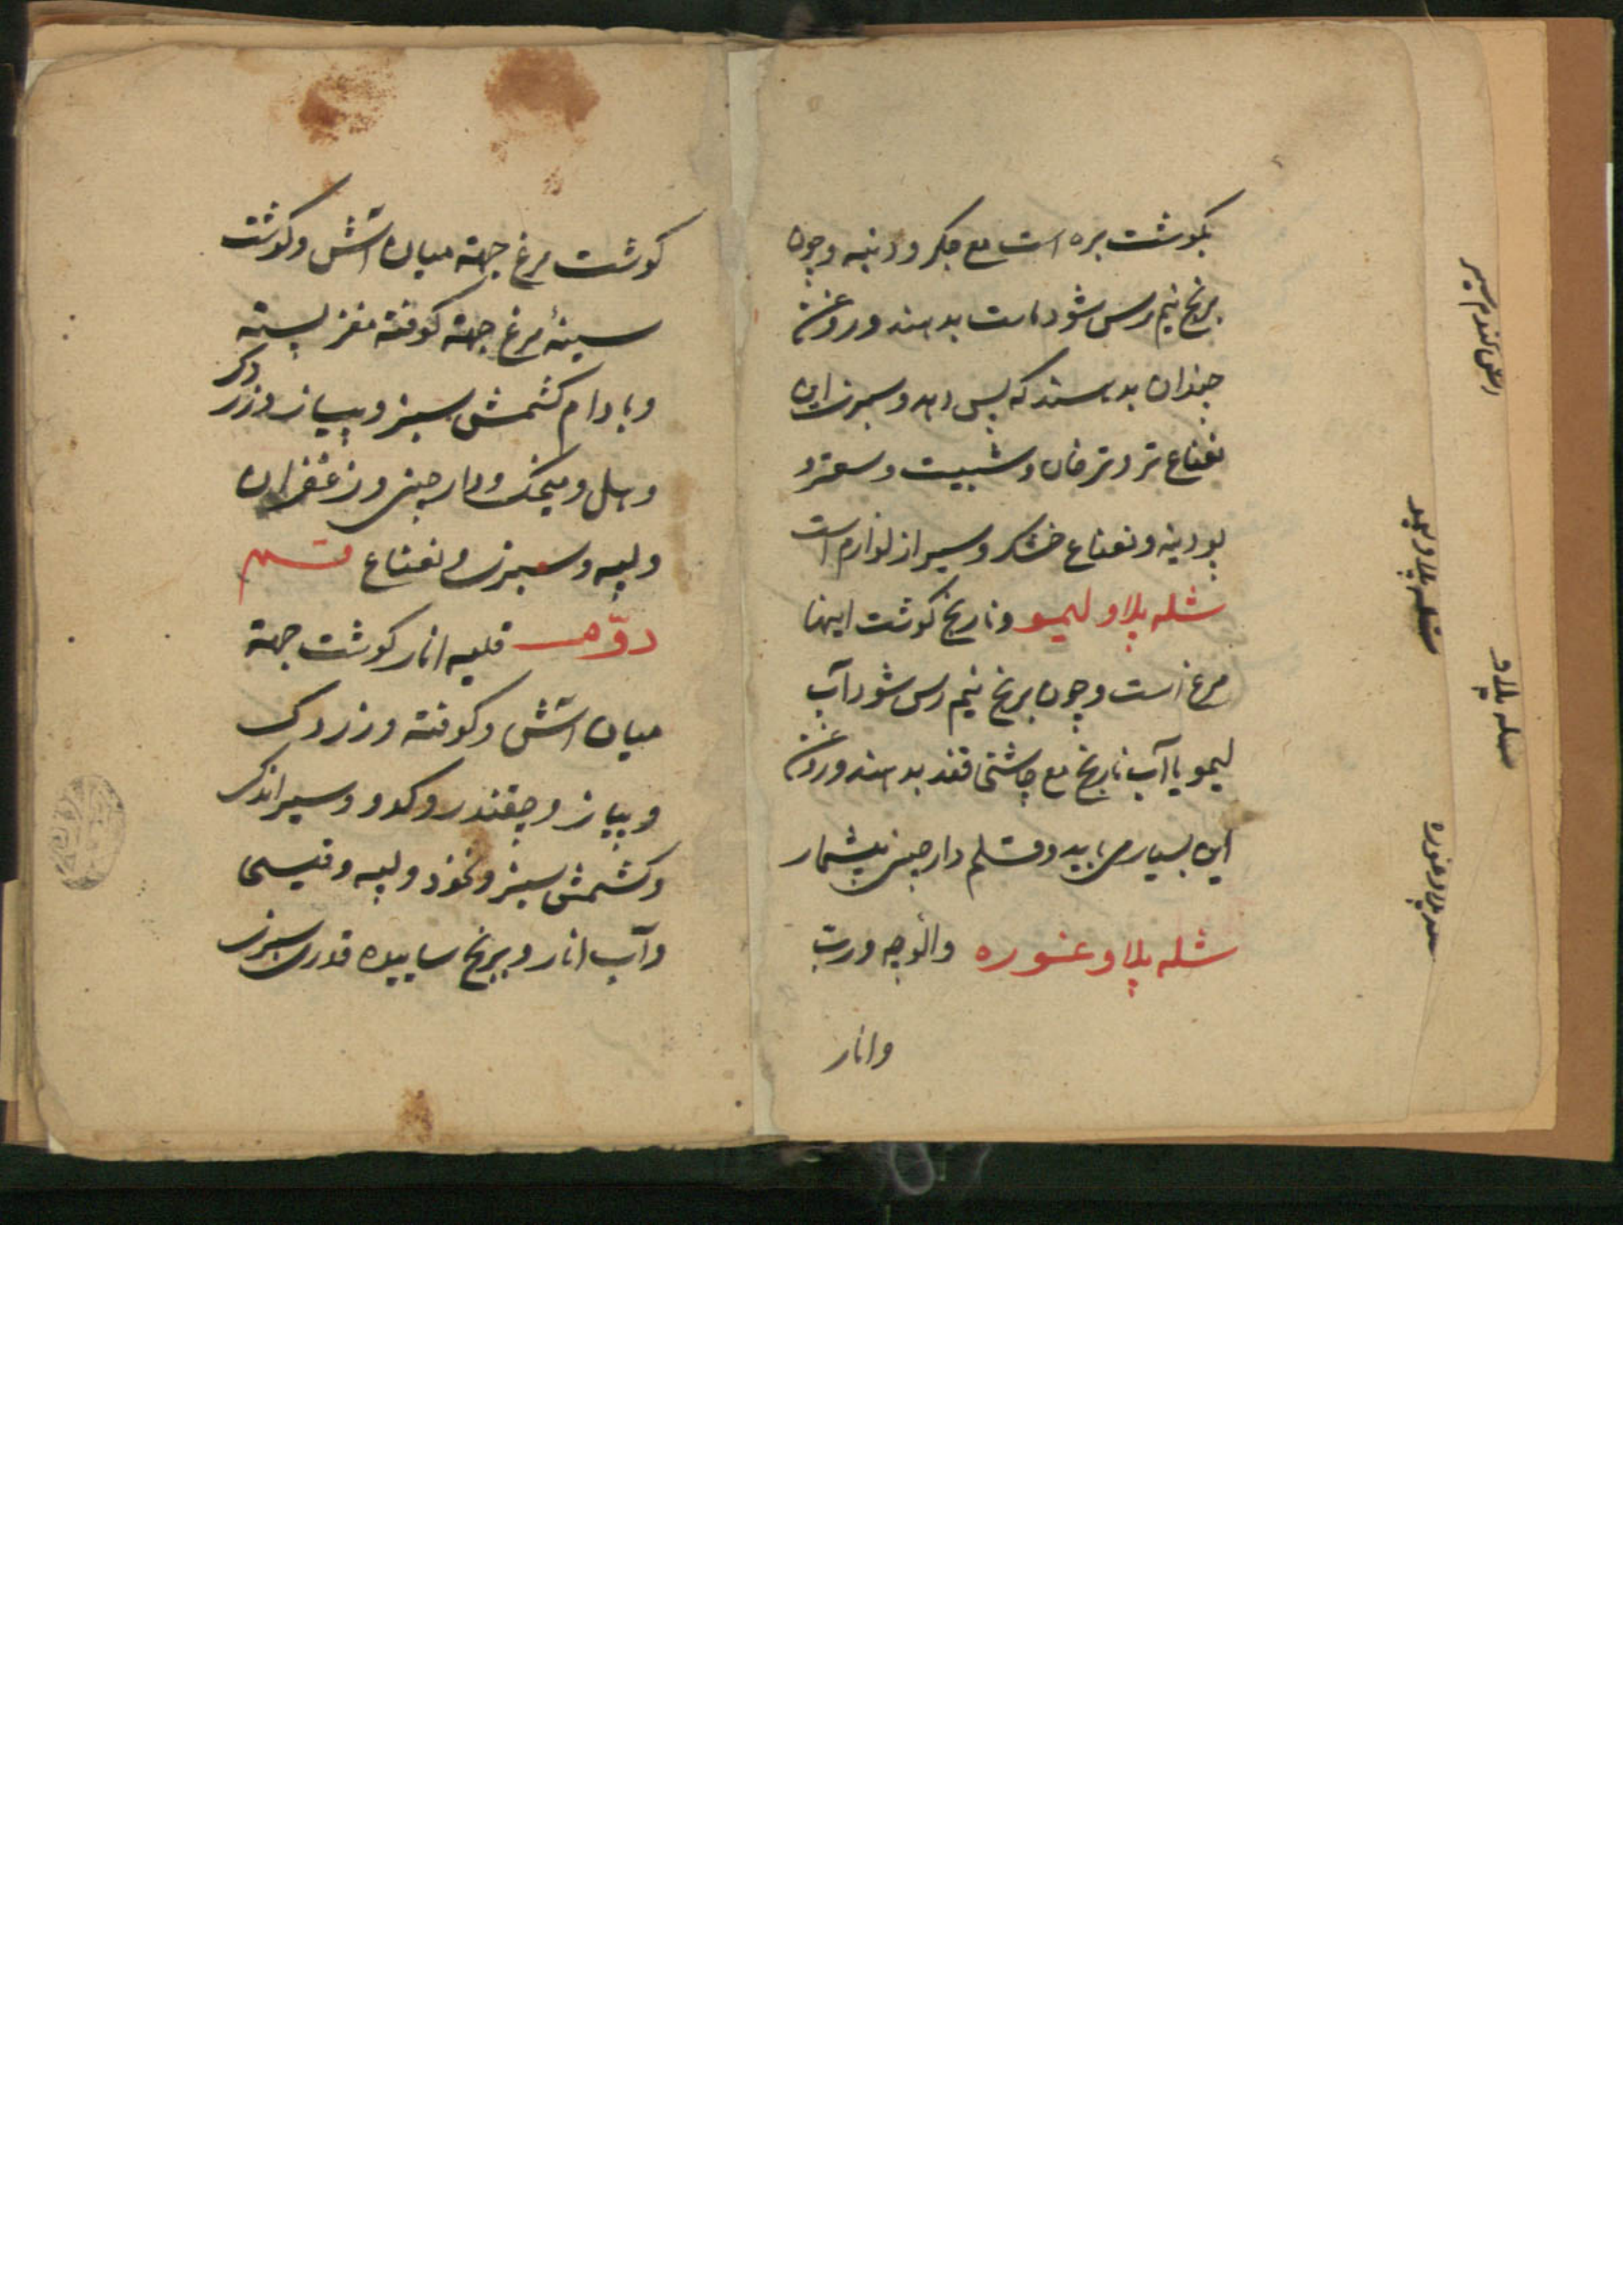 بکوشت بره است مع جکر و دنبه و چون
برنج نیم رس شود ماست بدهند و روغن
چندان بدهند که پس دهد و سبزی این
نعناع تر و ترخان و شبیت و سعتر و
پودینه و نعناع خشک و سیر از لوازم است
شله پلاو لیمو و نارنج کوشت اینها
مرغ است و چون برنج نیم رس شود آب
لیمو یا آب نارنج مع چاشنی قند بدهند و روغن
این بسیار می باید و قلم دارچینی بیشمار
شله پلاو غوره و آلوچه و رب
و انار
آش کندم سیر
شله پلاو
شله پلاو لیمو
شله پلاو غوره
کوشت مرغ جهة میان آش و کوشت
سینهٔ مرغ جهة کوفته مغز پسته
و بادام کشمش سبز و پیاز و زردک
و هل و میخک و دارچینی و زعفران
و لپه و سبزی و نعناع قسم
دوّم قلیه انار کوشت جهة
میان آش و کوفته و زردک
و پیاز و چقندر و کدو و سیر اندک
و کشمش سبز و نخود و لپه و قیسی
و آب انار و برنج ساییده قدری سبزی